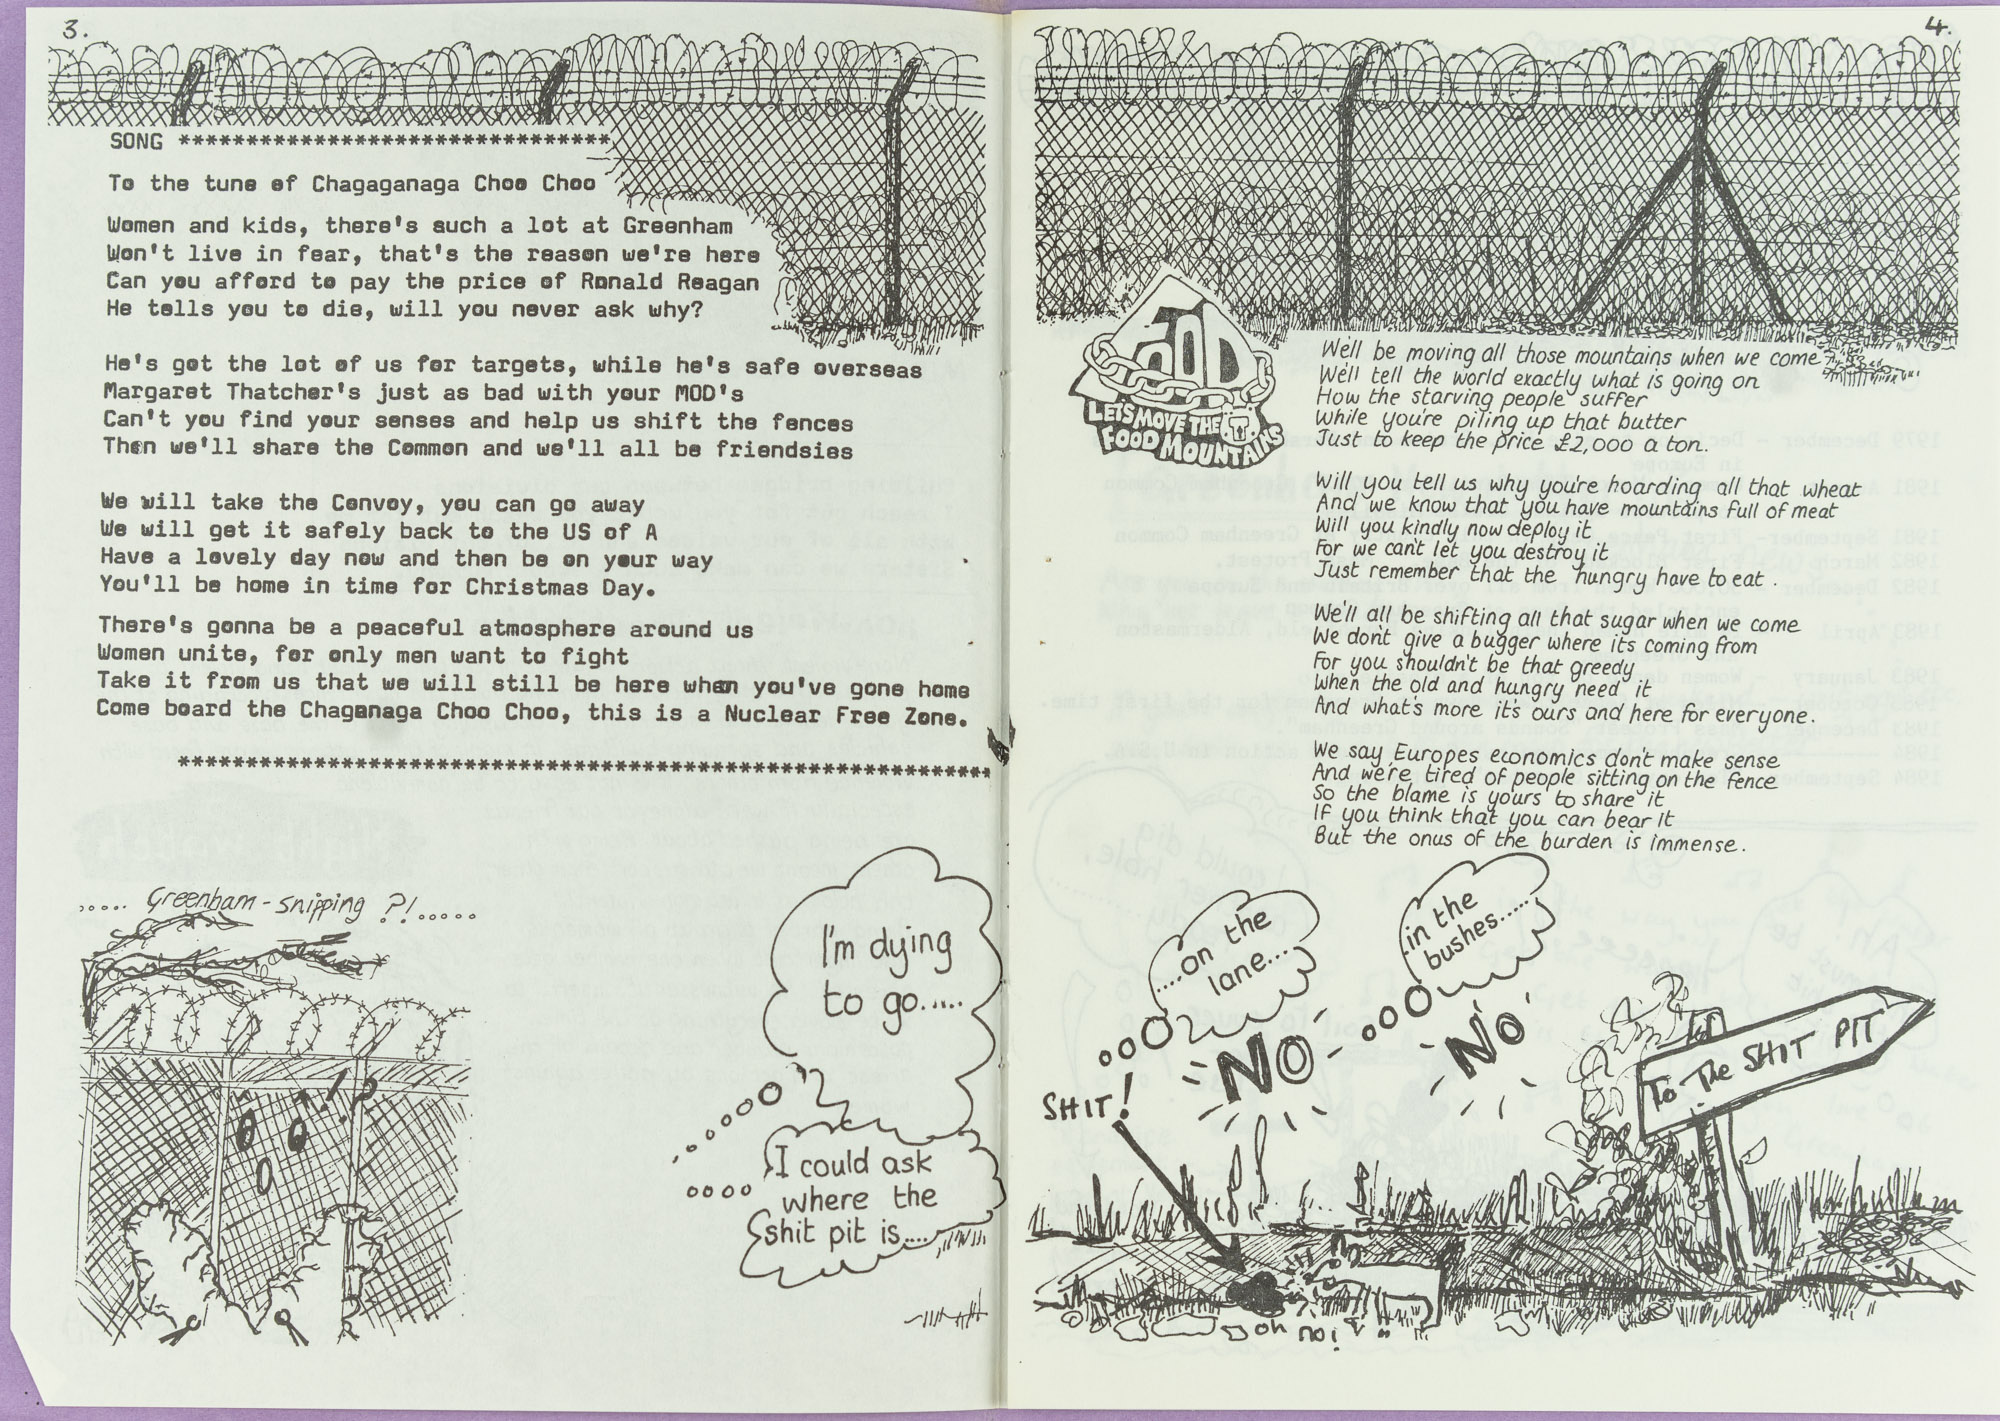 3.
SONG ********************************
To the tune of Chagaganaga Choo Choo
Women and kids, there's such a lot at Greenham
Won't live in fear, that's the reason we're here
Can you afford to pay the price of Ronald Reagan
He tells you to die, will you never ask why?
He's got the lot of us for targets, while he's safe overseas
Margaret Thatcher's just as bad with your MOD's
Can't you find your senses and help us shift the fences
Then we'll share the Common and we'll all be friendsies
We will take the Convoy, you can go away
We will get it safely back to the US of A
Have a lovely day now and then be on your way
You'll be home in time for Christmas Day.
There's gonna be a peaceful atmosphere around us
Women unite, for only men want to fight
Take it from us that we will still be here when you've gone home
Come board the Chaganaga Choo Choo, this is a Nuclear Free Zone.
************************************************************
..... Greenham - snipping ?!.....
!!?
I'm dying
to go.....
I could ask
where the
shit pit is....
4.
FOOD
LET'S MOVE THE
FOOD MOUNTAINS
We'll be moving all those mountains when we come
We'll tell the world exactly what is going on
How the starving people suffer
While you're piling up that butter
Just to keep the price £2,000 a ton.
Will you tell us why you're hoarding all that wheat
And we know that you have mountains full of meat
Will you kindly now deploy it
For we can't let you destroy it
Just remember that the hungry have to eat.
We'll all be shifting all that sugar when we come
We don't give a bugger where it's coming from
For you shouldn't be that greedy
When the old and hungry need it
And what's more it's ours and here for everyone.
We say Europes economics don't make sense
And we're tired of people sitting on the fence
So the blame is yours to share it
If you think that you can bear it
But the onus of the burden is immense.
....on the
lane....
..in the
bushes.....
NO
NO
SHIT!
To The SHIT PIT
oh no!